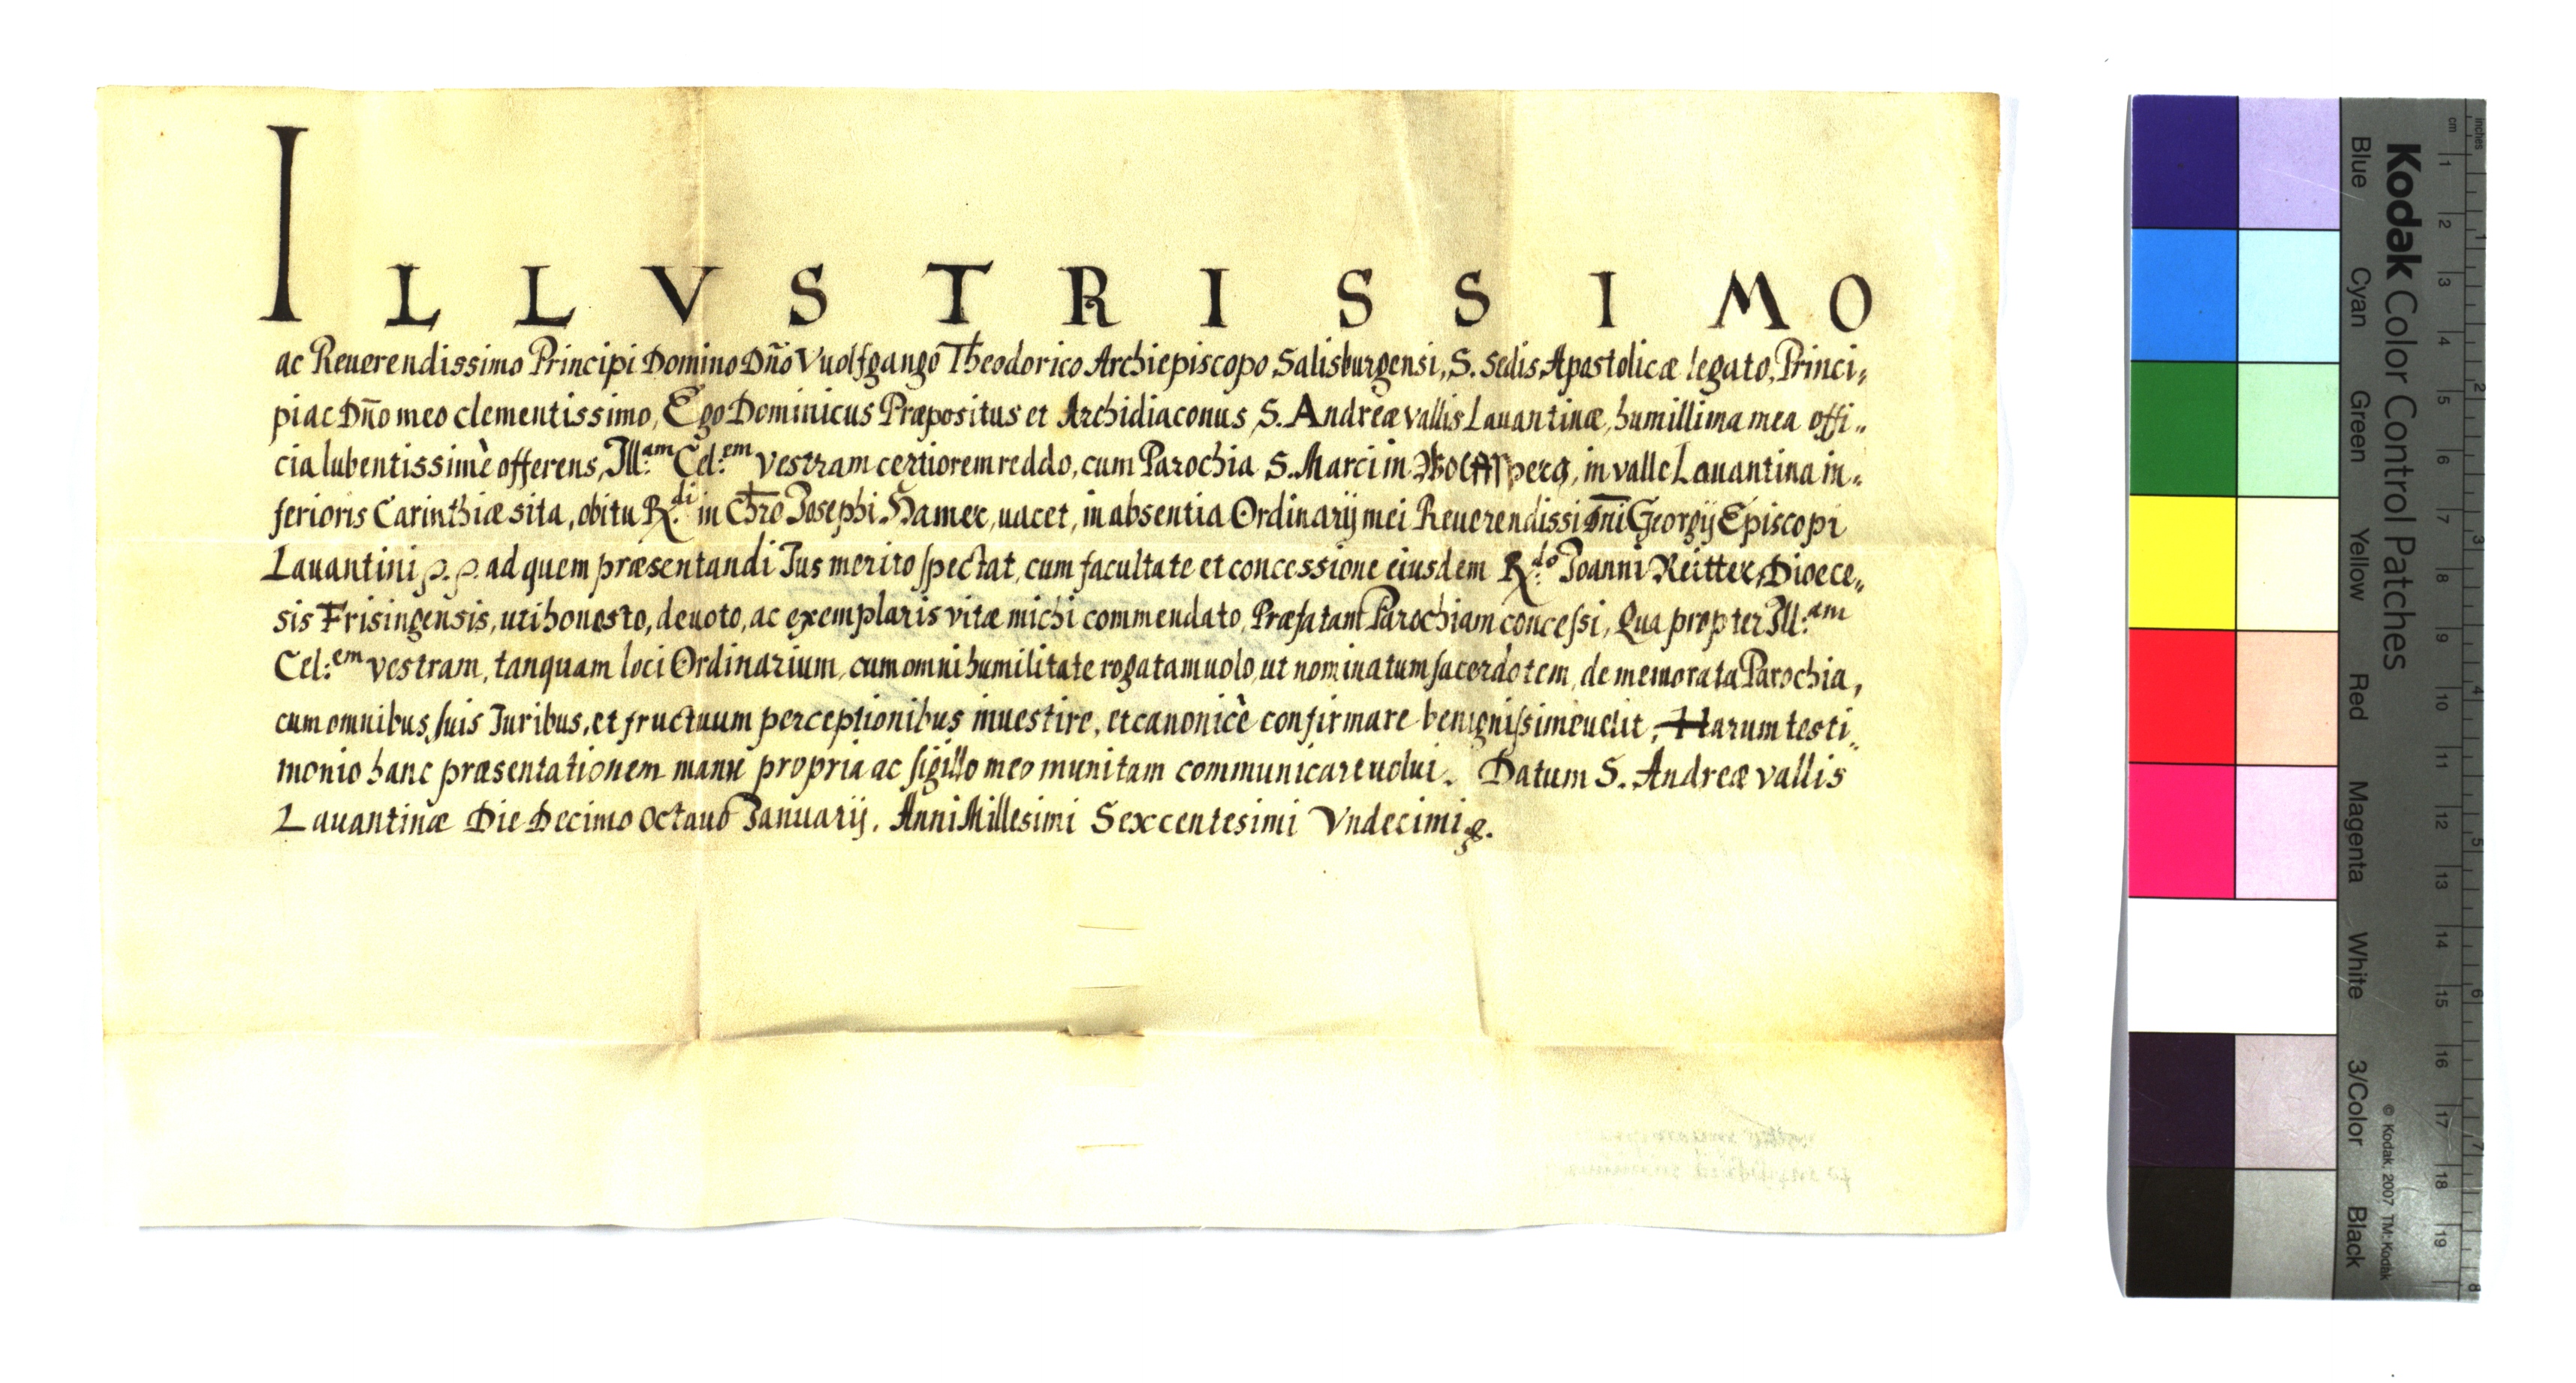 ILLVSTRISSIMO
ac Reuerendissimo Principi Domino Dño Vuolfgango Theodorico Archiepiscopo Salisburgensi, S. Sedis Apostolicæ legato, Princi,,
pi ac Dño meo clementissimo, Ego Dominicus Præpositus et Archidiaconus S. Andreæ vallis Lauantinæ, humillima mea offi,,
cia lubentissimè offerens, Ill:am Cel:em vestram certiorem reddo, cum Parochia S. Marci in Wolffsperg, in valle Lauantina in,,
ferioris Carinthiæ sita, obitu R:di in Chro Josephi Hamer, uacet, in absentia Ordinarij mei Reuerendissi Dni Georgij Episcopi
Lauantini p. p. ad quem præsentandi Jus merito spectat, cum facultate et concessione eiusdem R:do Joanni Reitter, Dioece,,
sis Frisingensis, uti honesto, deuoto, ac exemplaris vitæ michi commendato, Præfatam Parochiam concessi, Qua propter Ill:am
Cel:em vestram, tanquam loci Ordinarium, cum omni humilitate rogatam uolo, ut nominatum sacerdotem, de memorata Parochia,
cum omnibus suis Juribus, et fructuum perceptionibus inuestire, et canonicè confirmare benignissime uelit, Harum testi,,
monio hanc præsentationem manu propria ac sigillo meo munitam communicare uolui. Datum S. Andreæ vallis
Lauantinæ Die Decimo Octauo Januarij. Anni Millesimi Sexcentesimi Vndecimi
Kodak Color Control Patches
Blue Cyan Green Yellow Red Magenta White 3/Color Black
© Kodak, 2007 TM: Kodak
cm 1 2 3 4 5 6 7 8 9 10 11 12 13 14 15 16 17 18 19
inches 1 2 3 4 5 6 7 8